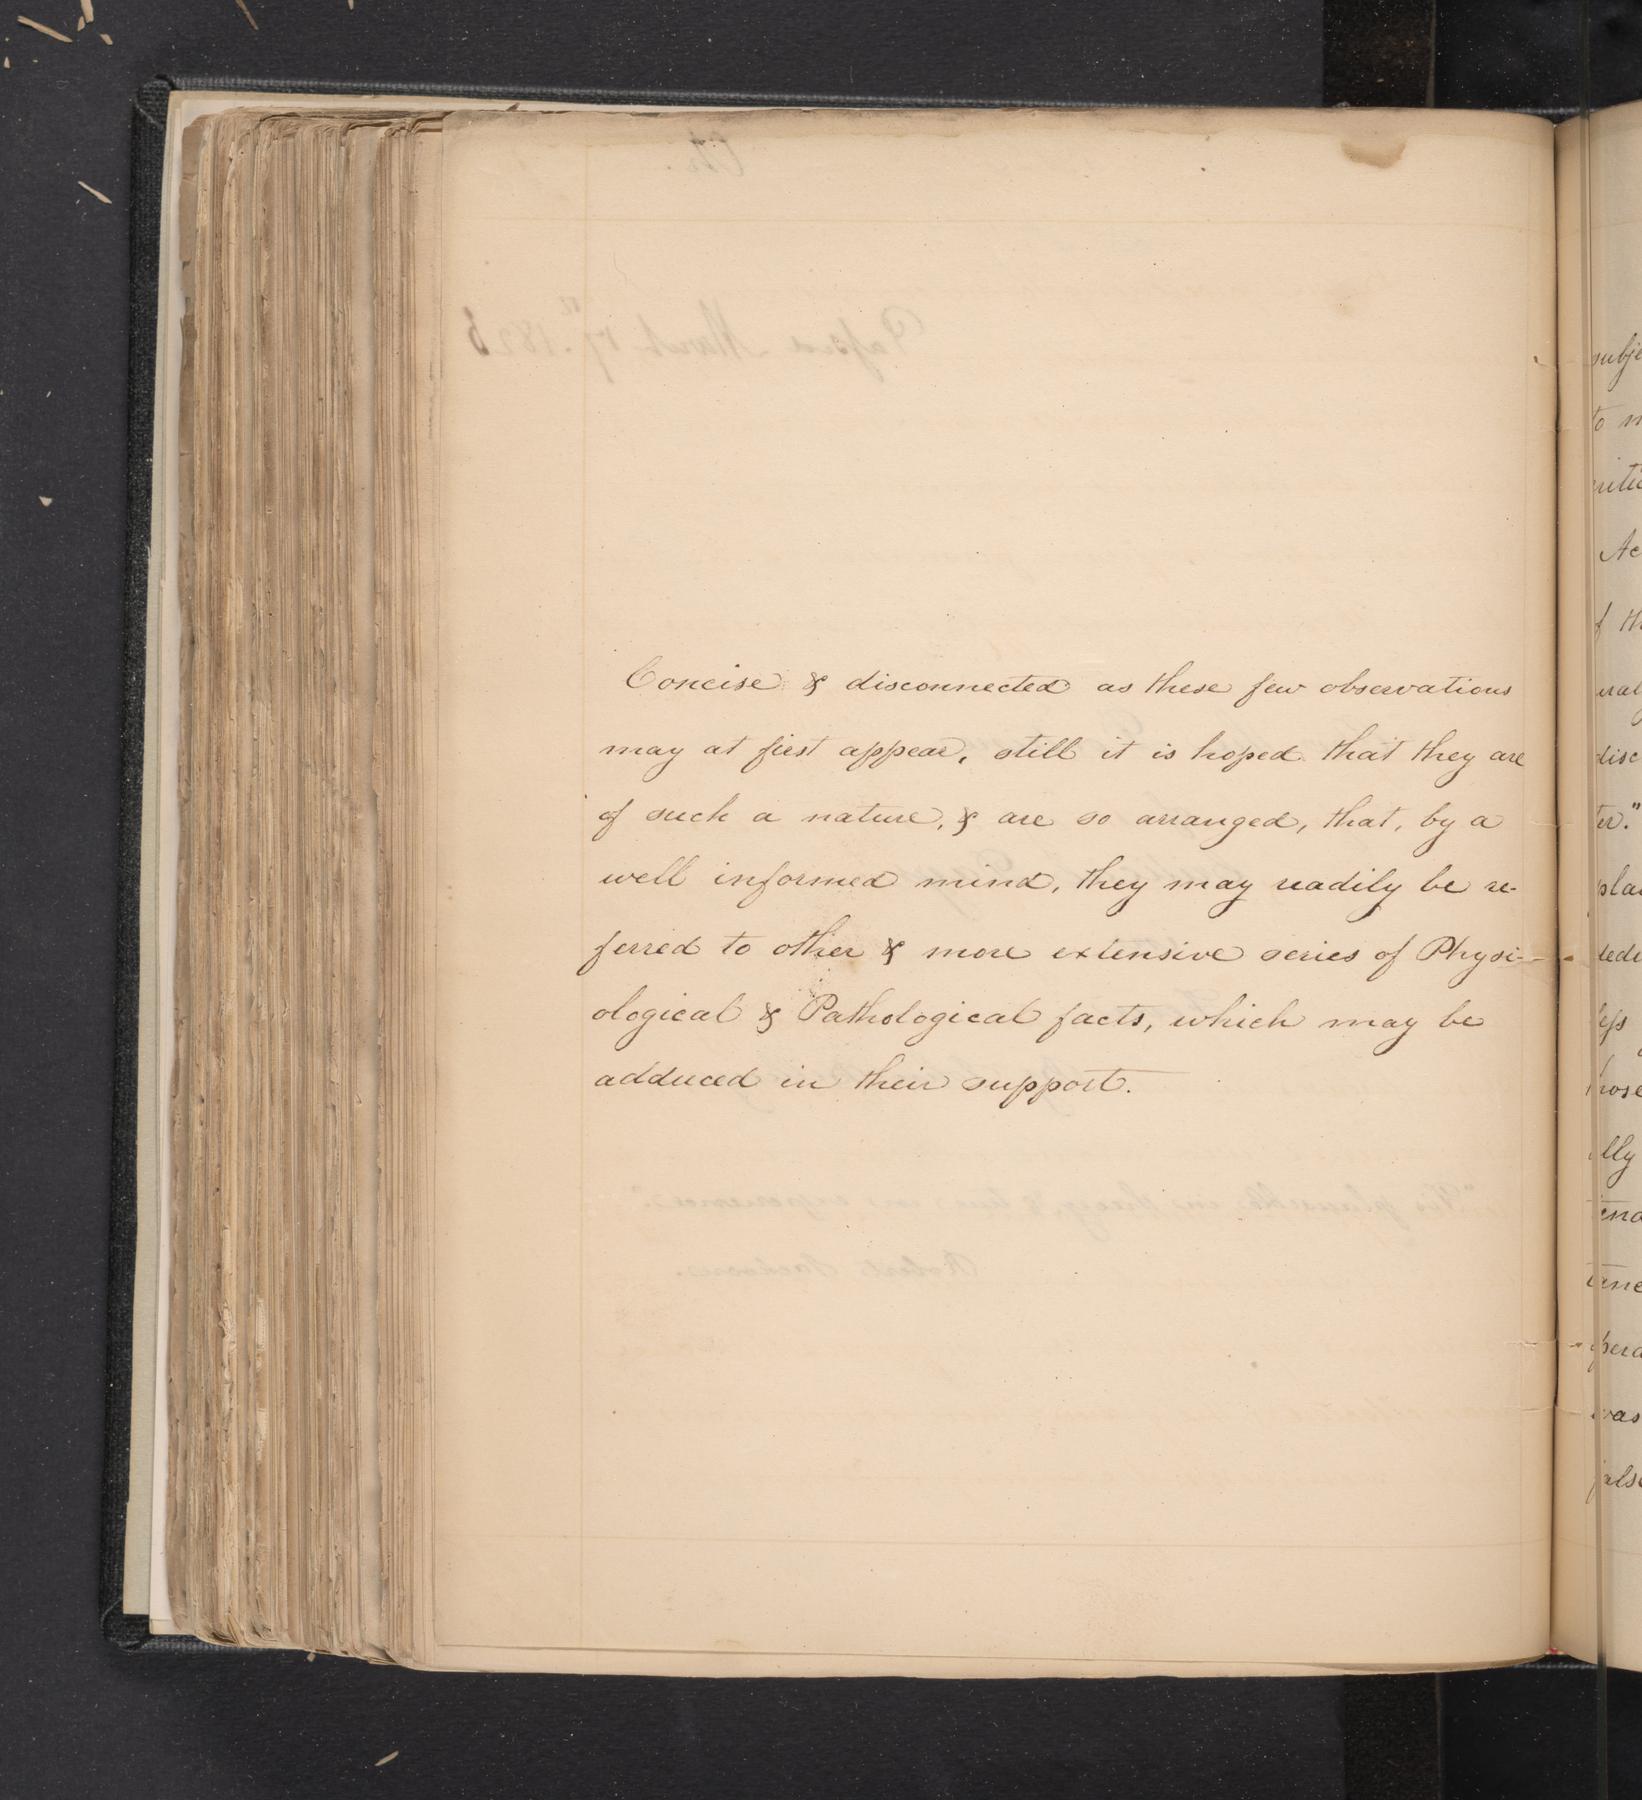 Concise & disconnected as these few observations
may at first appear, still it is hoped that they are
of such a nature, & are so arranged, that, by a
well informed mind, they may readily be re-
ferred to other & more extensive series of Physi-
ological & Pathological facts, which may be
adduced in their support.